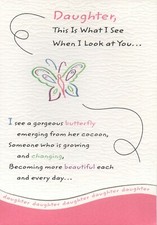 Daughter,
This Is What I See
When I Look at You...
I see a gorgeous butterfly
emerging from her cocoon,
Someone who is growing
and changing,
Becoming more beautiful each
and every day...
daughter daughter daughter daughter daughter daughter